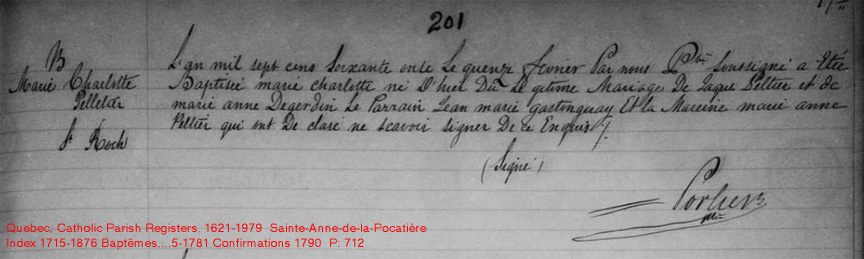 201
B
Marie Charlotte
Pelletier
St Roch
L'an mil sept cens soixante onse Le quenze fevrier Par nous Ptre Soussigné a Etée
Baptisée marie charlotte né D'hier Du Le getime Mariage De Jaque Peltier et de
marie anne Degerdin Le Parrain Jean marie gastonguay Et la Mareine marie anne
Peltier qui ont De claré ne scavoir signer De ce Enquis
(Signé)
Porlier
ptre
Quebec, Catholic Parish Registers, 1621-1979 Sainte-Anne-de-la-Pocatière
Index 1715-1876 Baptêmes,...5-1781 Confirmations 1790 P: 712